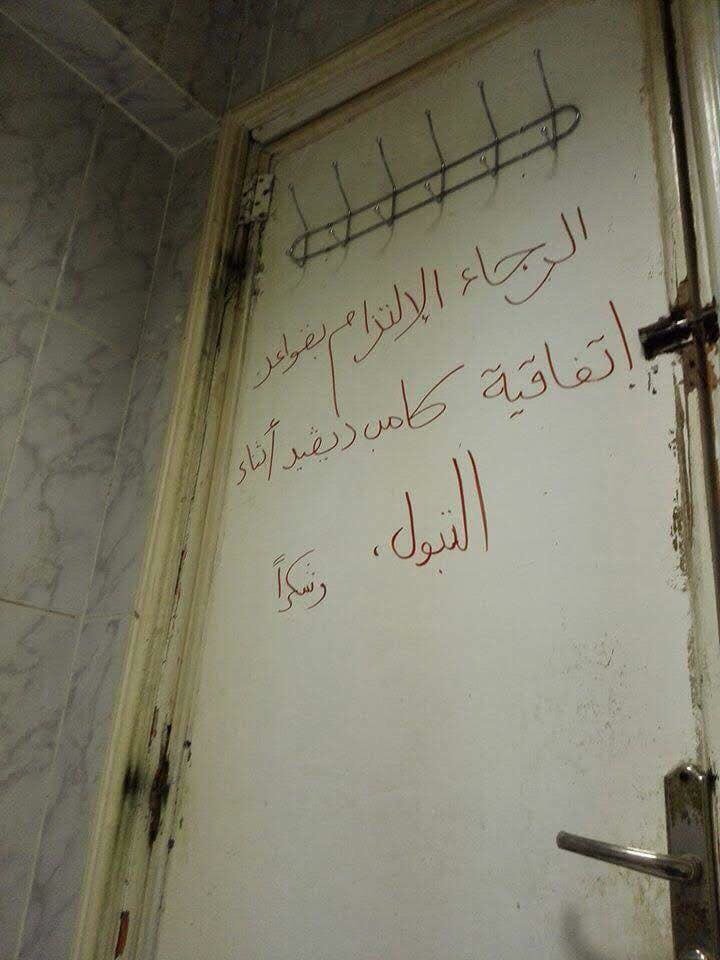 الرجاء الإلتزام بقواعد
إتفاقية كامب ديڤيد أثناء
التبول، وشكراً